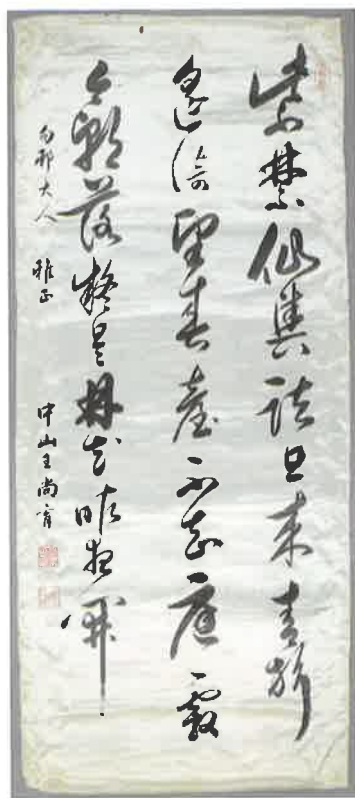 紫禁仙輿詰旦来青旂
遙倚望春臺不知庭霰
今朝落疑是林花昨夜開
大人 雅正 中山王尚育